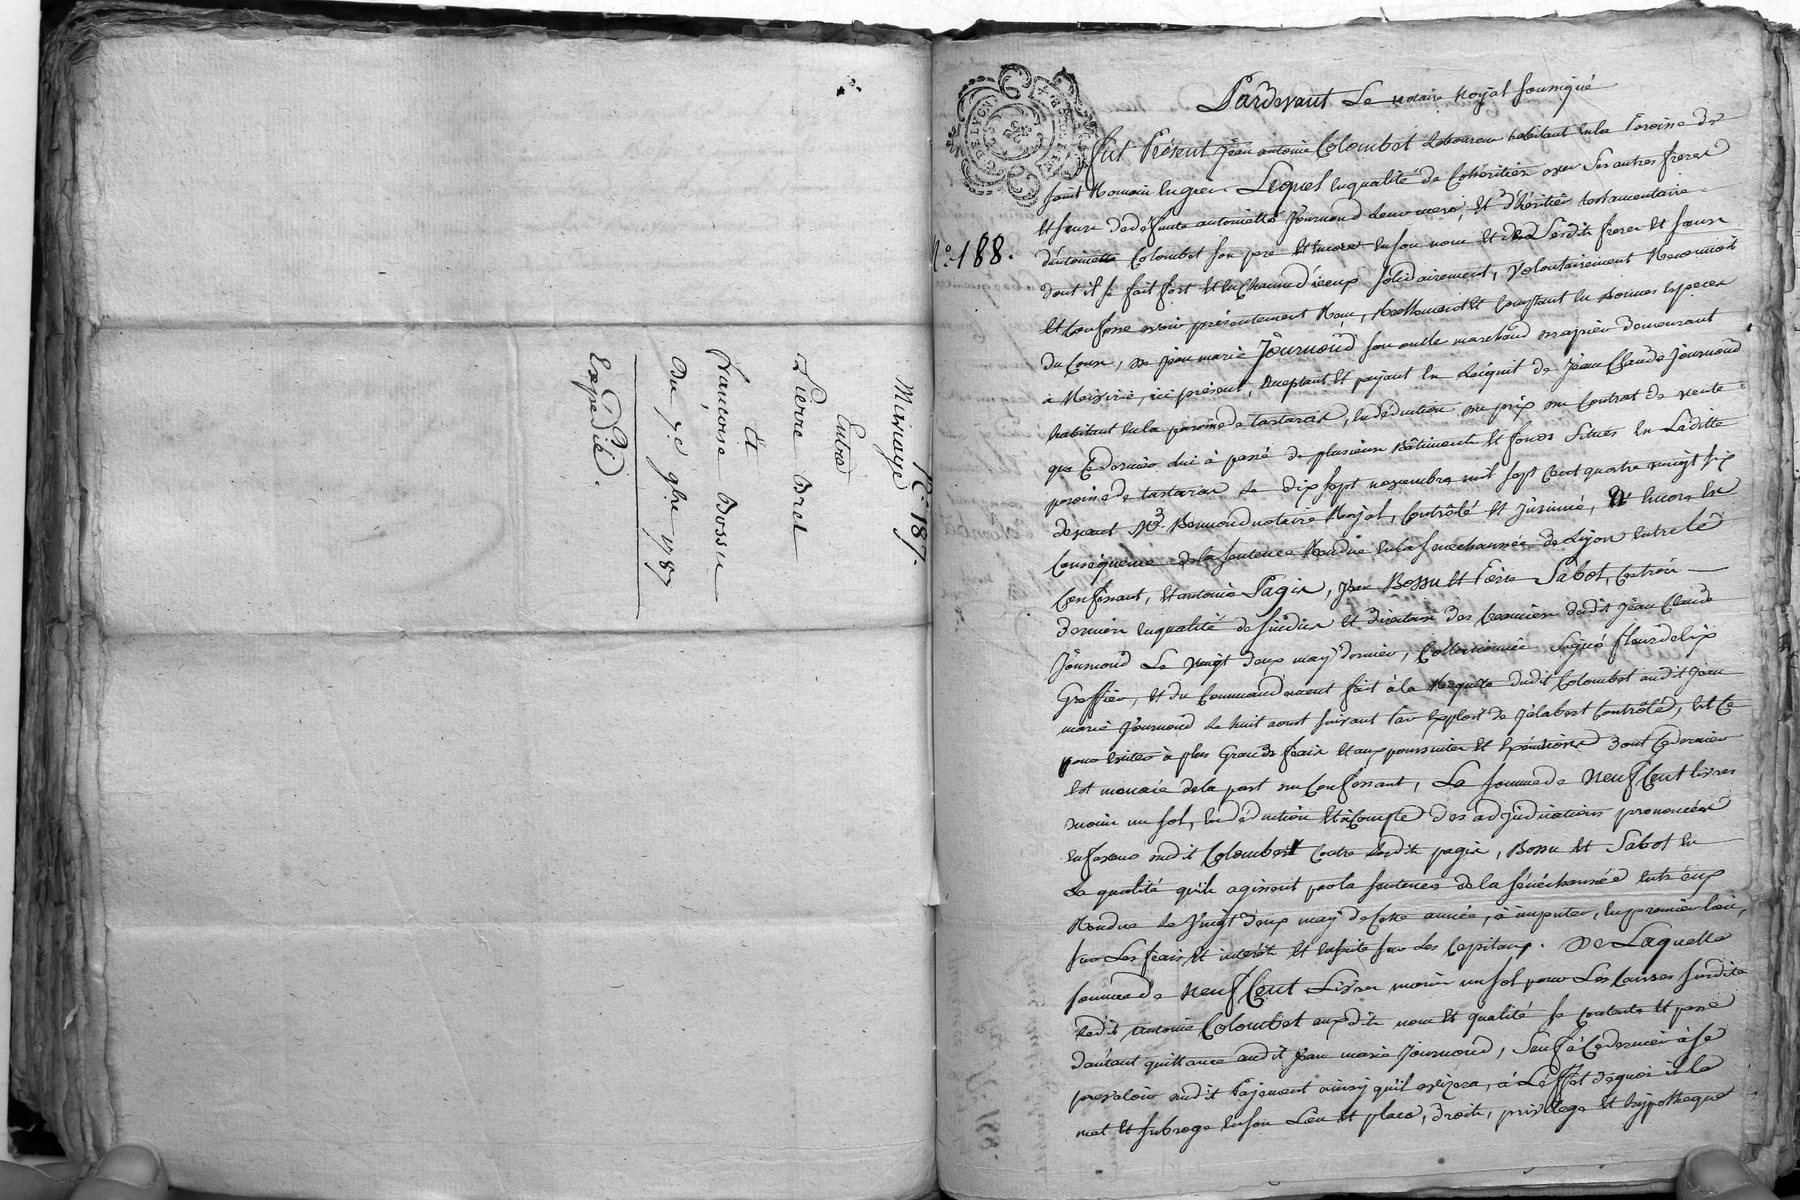 N.° 187.
Mariage
Entre
Pierre Bret
Et
Françoise Bossu
Du 7.e 9bre 1787
Expedié.
N.° 188.
Pardevant Le notaire Royal soussigné
fut Présent jean antoine Colombet Laboureur habitant en la Paroisse de
saint Romain Lequel en qualité de Cohéritier avec Ses autres freres
et sœurs de defunte antoinette Journoud leur mere, et d'héritier testamentaire
d'antoine Colombet son pere et encore en son nom et de Sesdits freres et sœurs
dont il se fait fort et en Chacun d'iceux solidairement, Volontairement Reconnoit
et Confesse avoir présentement Reçu, Réellement et Comptant en Bonnes Especes
du Cours, de jean marie Journoud son oncle marchand demeurant
a ici présent, acceptant et payant en l'acquit de Jean Claude Journoud
habitant en la paroisse de tartaras, en déduction du prix du Contrat de vente
que Ce dernier lui à passé de plusieurs Bâtiments et fonds Situés en Laditte
paroisse de tartaras Le dix sept novembre mil sept Cent quatre vingt six
devant M.e Bonnond notaire Royal, Contrôlé et insinué, Et encore En
Conséquence de la sentence Rendue en la senechaussée de Lyon entre le
Confessant, et antoine Pagis, Jean Bossu et Pierre Sabot, Ces trois
derniers en qualité de sindics et directeurs des Creanciers dudit Jean Claude
Journoud Le Vingt deux may dernier, Collationnée Signé fleurdelix
Greffier, et du Commandement fait à la Requête dudit Colombet audit Jean
marie Journoud Le huit aoust suivant Par Exploit de Jalabert Contrôlé, Et Ce
pour éviter à plus Grands fraix et aux poursuites et Exécutions dont Ce dernier
est menacé de la part du Confessant, La somme de neuf Cent livres
moins un sol, en déduction et à Compte des adjudications prononcées
en faveur dudit Colombet Contre lesdits pagis, Bossu et Sabot en
La qualité qu'ils agissent par la sentence de la sénéchaussée entr'eux
Rendue Le Vingt deux may de Cette année, à imputer, en premier lieu,
sur Les fraix et intérêts et ensuite sur les Capitaux. De Laquelle
somme de neuf Cent Livres moins un sol pour Les Causes susdites
Ledit antoine Colombet auxdits nom et qualité se Contente et passe
d'autant quittance audit Jean marie Journoud, Sauf à Ce dernier à se
prevaloir dudit Payement ainsy qu'il avisera, à L'effet de quoi il le
met et subroge en son Lieu et place, droits, privilege et hyppotheque